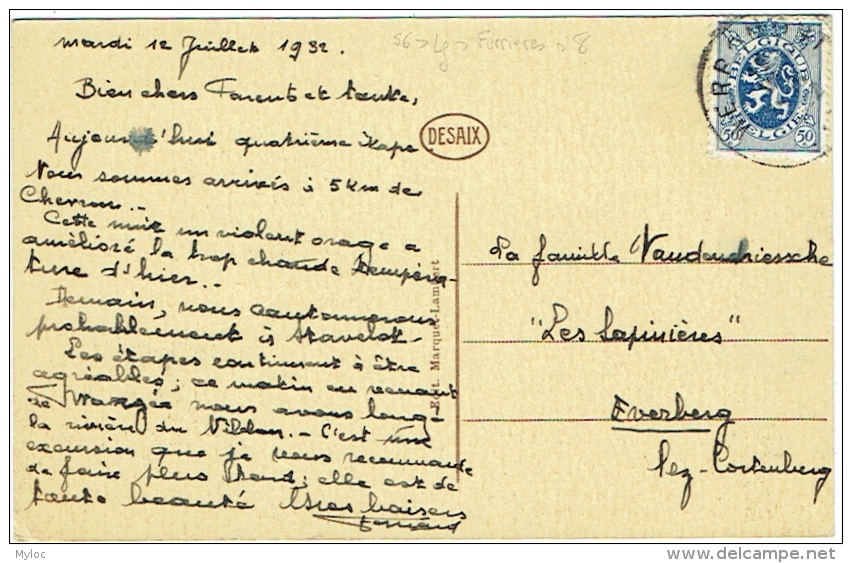 Mardi 12 Juillet 1932.
56 > Lg > Ferrières > 8
Bien chers Parents et tante,
Aujourd'hui quatrième étape
DESAIX
Nous sommes arrivés à 5 Km de
Chevron.-
Cette nuit un violent orage a
amélioré la trop chaude tempéra-
ture d'hier..
Demain, nous cantonnerons
probablement à Stavelot.-
Les étapes continuent à être
agréables; ce matin en venant
de nous avons long-
la rivière du .- C'est une
excursion que je vous recommande
de faire plus tard; elle est de
toute beauté Gros baisers
Fernand
Edit. Marquet-Lambert
BELGIQUE
BELGIE
50 50
La famille Vandendriessche
"Les Sapinières"
Everberg
lez-Cortenberg
Myloc
delcampe.net